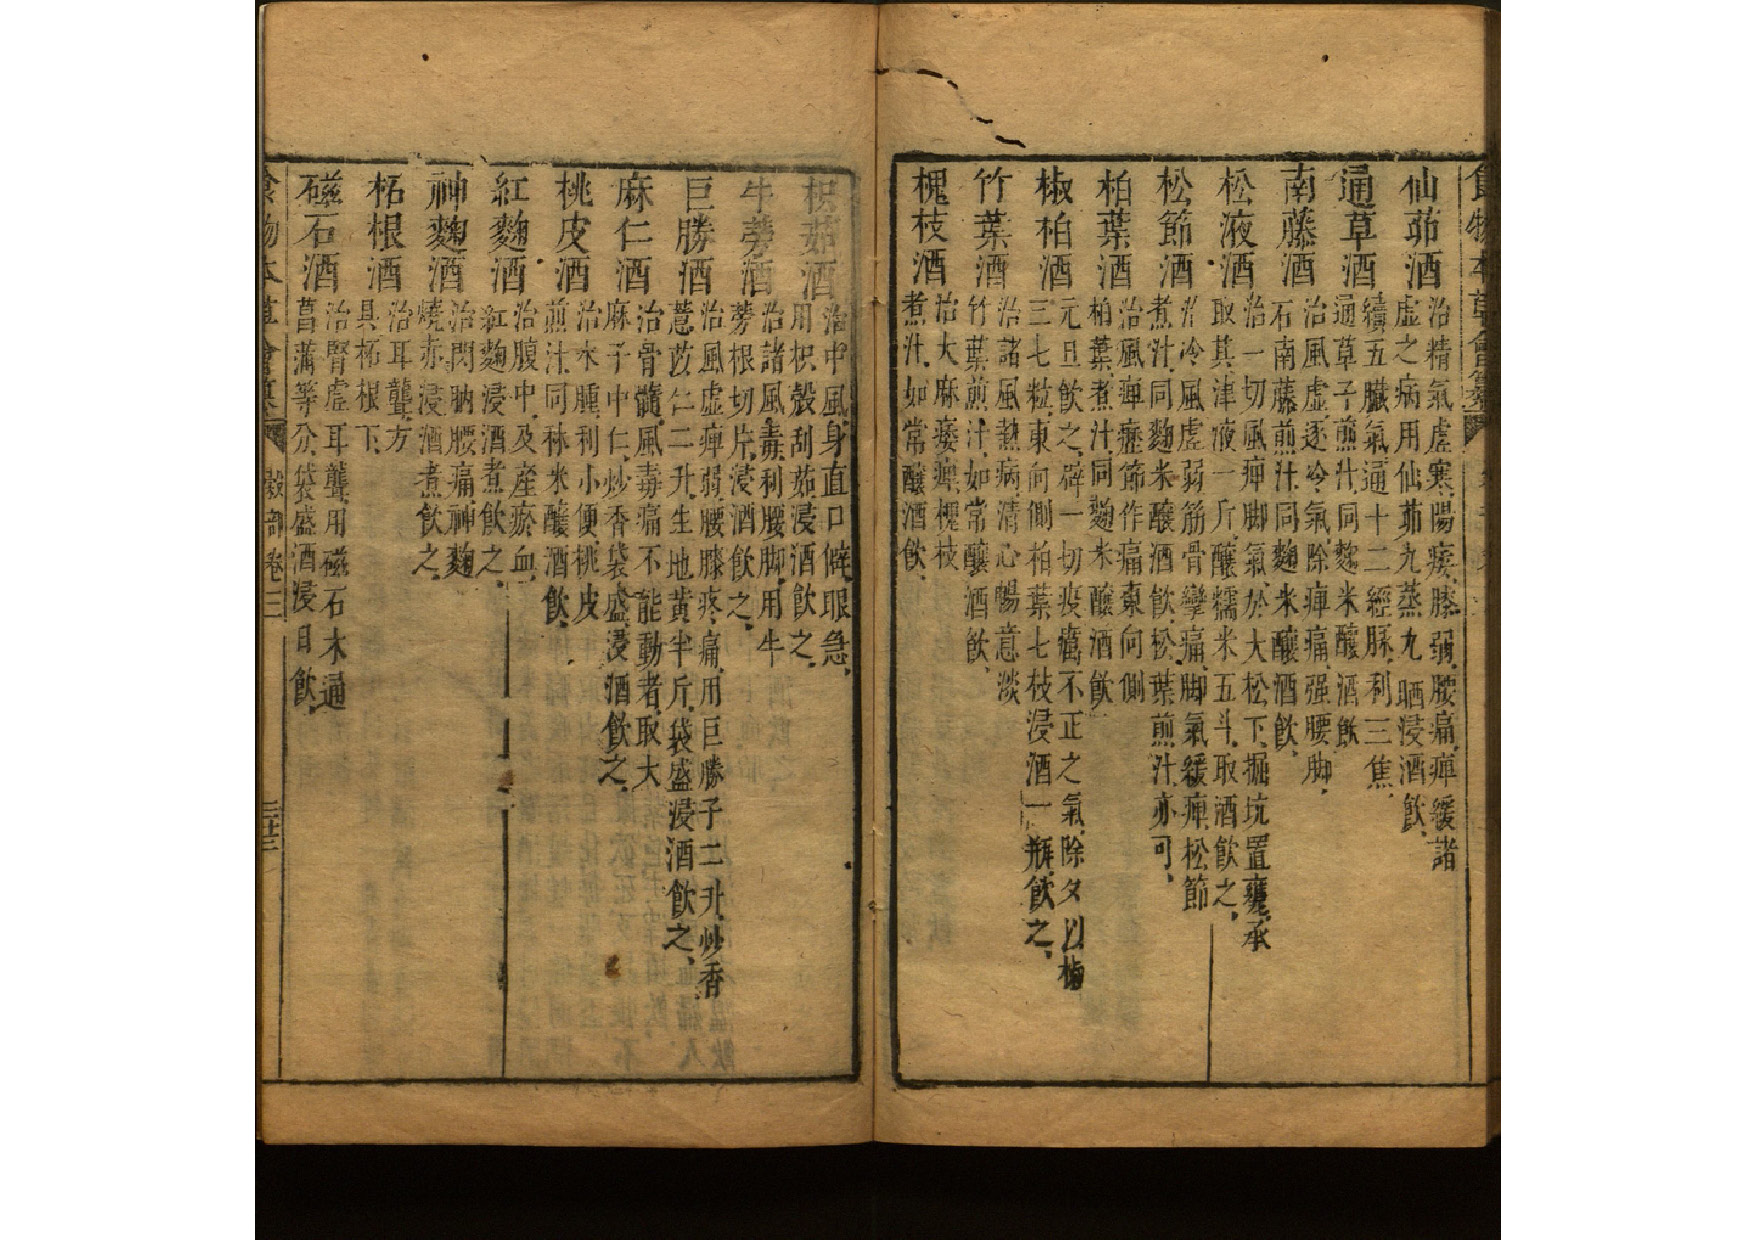 仙茆酒 治精氣虛寒、陽痿、膝弱、腰痛、痺緩諸
虛之病、用仙茆九蒸九晒、浸酒飲、
通草酒 續五臟氣、通十二經脉、利三焦、
通草子煎汁、同麴米釀酒飲
南藤酒 治風虛、逐冷氣、除痺痛、强腰脚、
石南藤煎汁、同麴米釀酒飲、
松液酒 治一切風痺脚氣、於大松下、掘坑置甕、承
取其津液一斤、釀糯米五斗、取酒飲之、
松節酒 治冷風虛弱、筋骨攣痛、脚氣緩痺、松節
煮汁、同麴米釀酒飲、松葉煎汁、亦可、
柏葉酒 治風痺歷節作痛、東向側
柏葉、煮汁、同麴米釀酒飲
椒柏酒 元旦飲之、辟一切疫癘不正之氣、除夕以椒
三七粒、東向側柏葉七枝、浸酒一瓶、飲之、
竹葉酒 治諸風熱病、清心暢意、淡
竹葉煎汁、如常釀酒飲、
槐枝酒 治大麻痿痺、槐枝
煮汁、如常釀酒飲、
枳茹酒 治中風、身直、口僻、眼急、
用枳殼刮茹、浸酒飲之、
牛蒡酒 治諸風毒、利腰脚、用牛
蒡根切片、浸酒飲之、
巨勝酒 治風虛痺弱、腰膝疼痛、用巨勝子二升、炒香
薏苡仁二升、生地黃半斤、袋盛浸酒飲之、
麻仁酒 治骨髓、風毒、痛不能動者、取大
麻子中仁、炒香袋盛、浸酒飲之、
桃皮酒 治水腫、利小便、桃皮
煎汁、同秫米釀酒飲、
紅麴酒 治腹中、及産瘀血、
紅麴浸酒煮飲之、
神麴酒 治閃肭腰痛、神麴
燒赤、浸酒煮飲之、
柘根酒 治耳聾、方
具柘根下、
磁石酒 治腎虛耳聾、用磁石木通
菖蒲等分、袋盛酒浸日飲、
食物本草會纂 穀部卷三 二十三